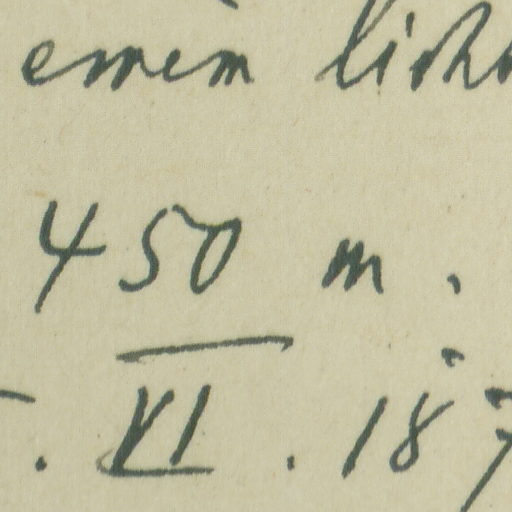 einem licht
450 m.
. VI. 187